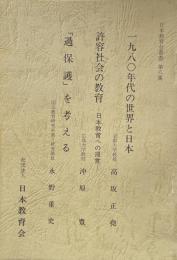 日本教育会叢書 第八集
一九八〇年代の世界と日本
京都大学教授 高坂正堯
許容社会の教育 日本教育への提言
広島大学教授 沖原豊
「過保護」を考える
永野重史
社団法人 日本教育会